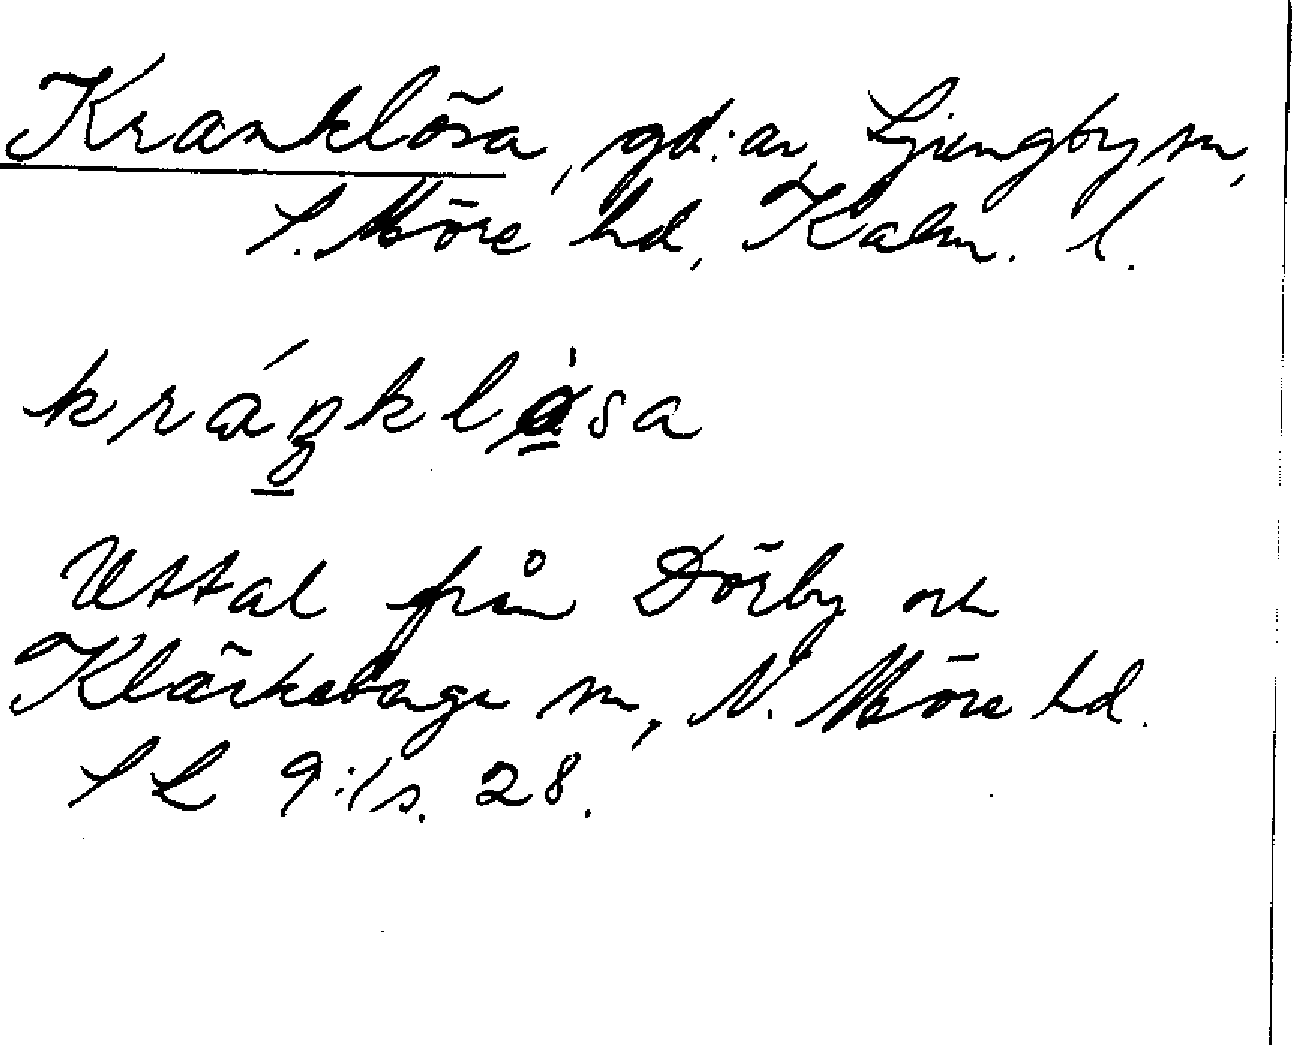 Kranklösa, gd:ar, Ljungby sn,
S. Möre hd, Kalm. l.
kráŋkløsa
Uttal från Dörby och
Kläckeberga sn, N. Möre hd.
SL 9:1 s. 28.